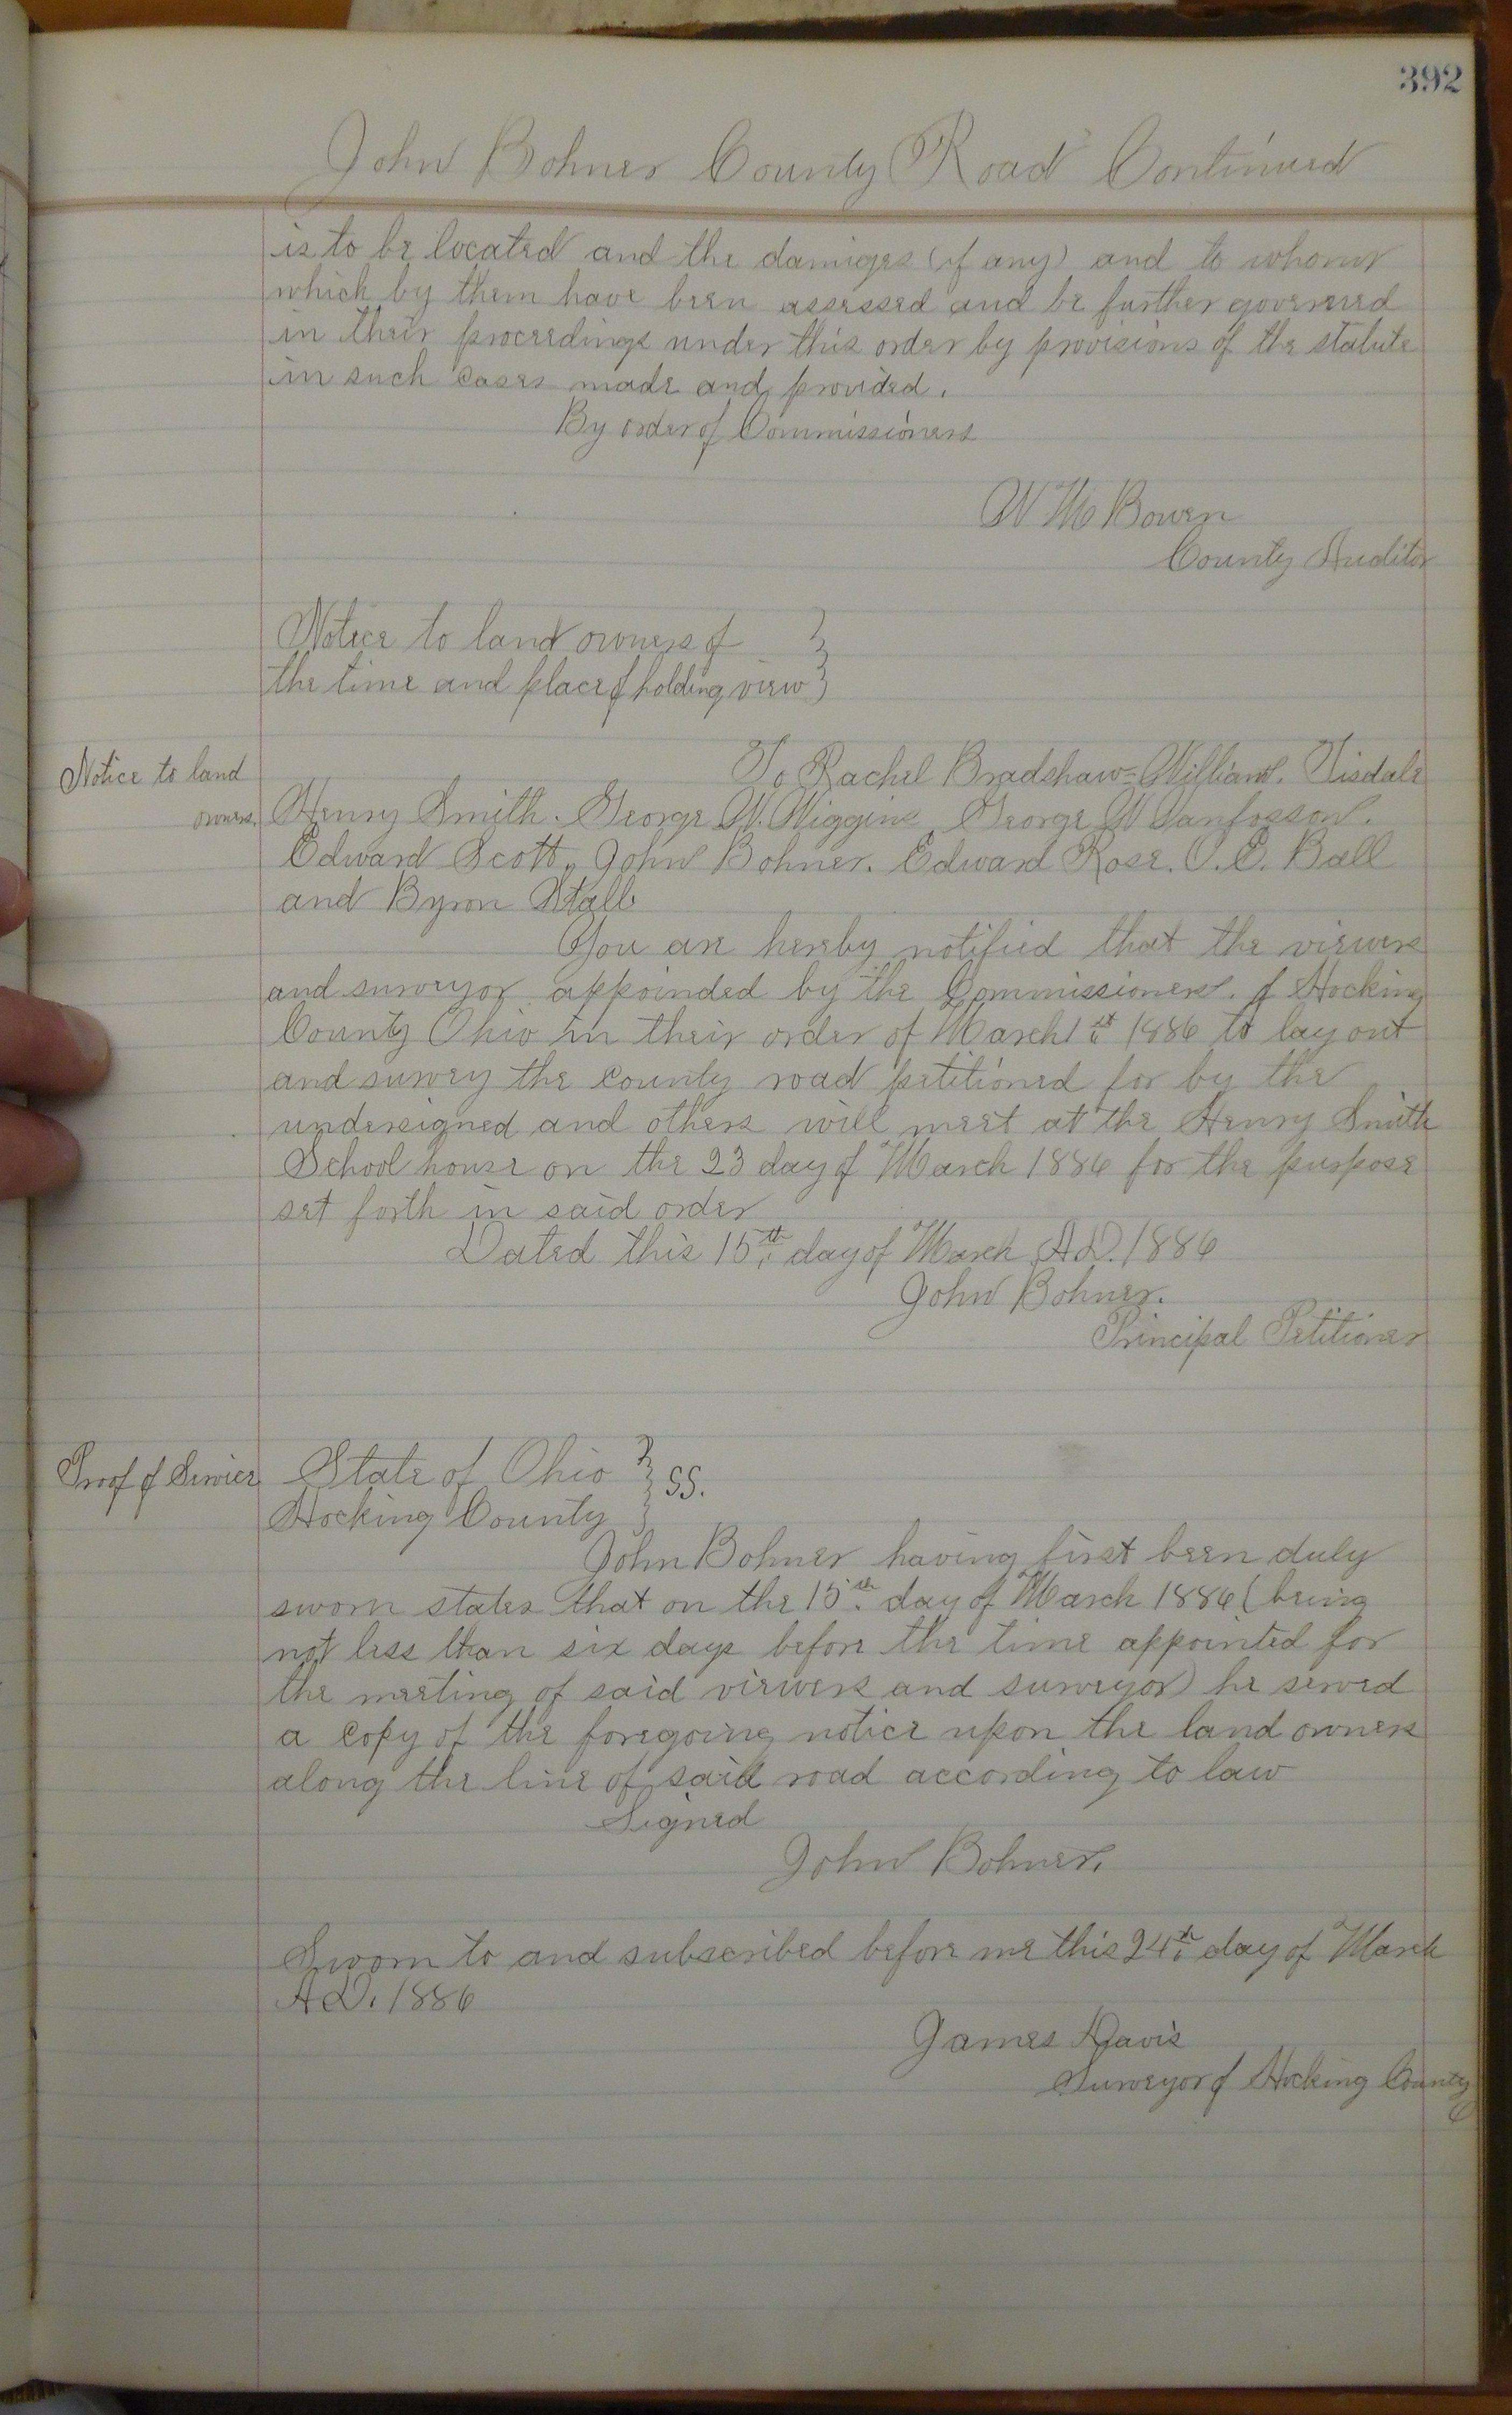 392
John Bohner County Road Continued
is to be located and the damiges (if any) and to whom
which by them have been assessed and be further governed
in their proceedings under this order by provisions of the statute
in such cases made and provided.
By order of Commissioners
W M Bowen
County Auditor
Notice to land owners of
the time and place of holding view
Notice to land
owners.
To Rachel Bradshaw = William. Tisdale
Henry Smith. George W. Wiggins, George W Vanfosson.
Edward Scott, John Bohner. Edward Rose. O. E. Ball
and Byron Stall.
You are hereby notified that the viewers
and surveyor appoinded by the Commissioners. of Hocking
County Ohio in their order of March 1st 1886 to lay out
and survey the county road petitioned for by the
undersigned and others will meet at the Henry Smith
School house on the 23 day of March 1886 for the purpose
set forth in said order
Dated this 15th day of March A.D. 1886
John Bohner.
Principal Petitioner
Proof of Service
State of Ohio
Hocking County
SS.
John Bohner having first been duly
sworn states that on the 15th day of March 1886 (being
not less than six days before the time appointed for
the meeting of said viewers and surveyor) he served
a copy of the foregoing notice upon the land owners
along the line of said road according to law
Signed
John Bohner.
Sworn to and subscribed before me this 24th day of March
A.D. 1886
James Davis
Surveyor of Hocking County